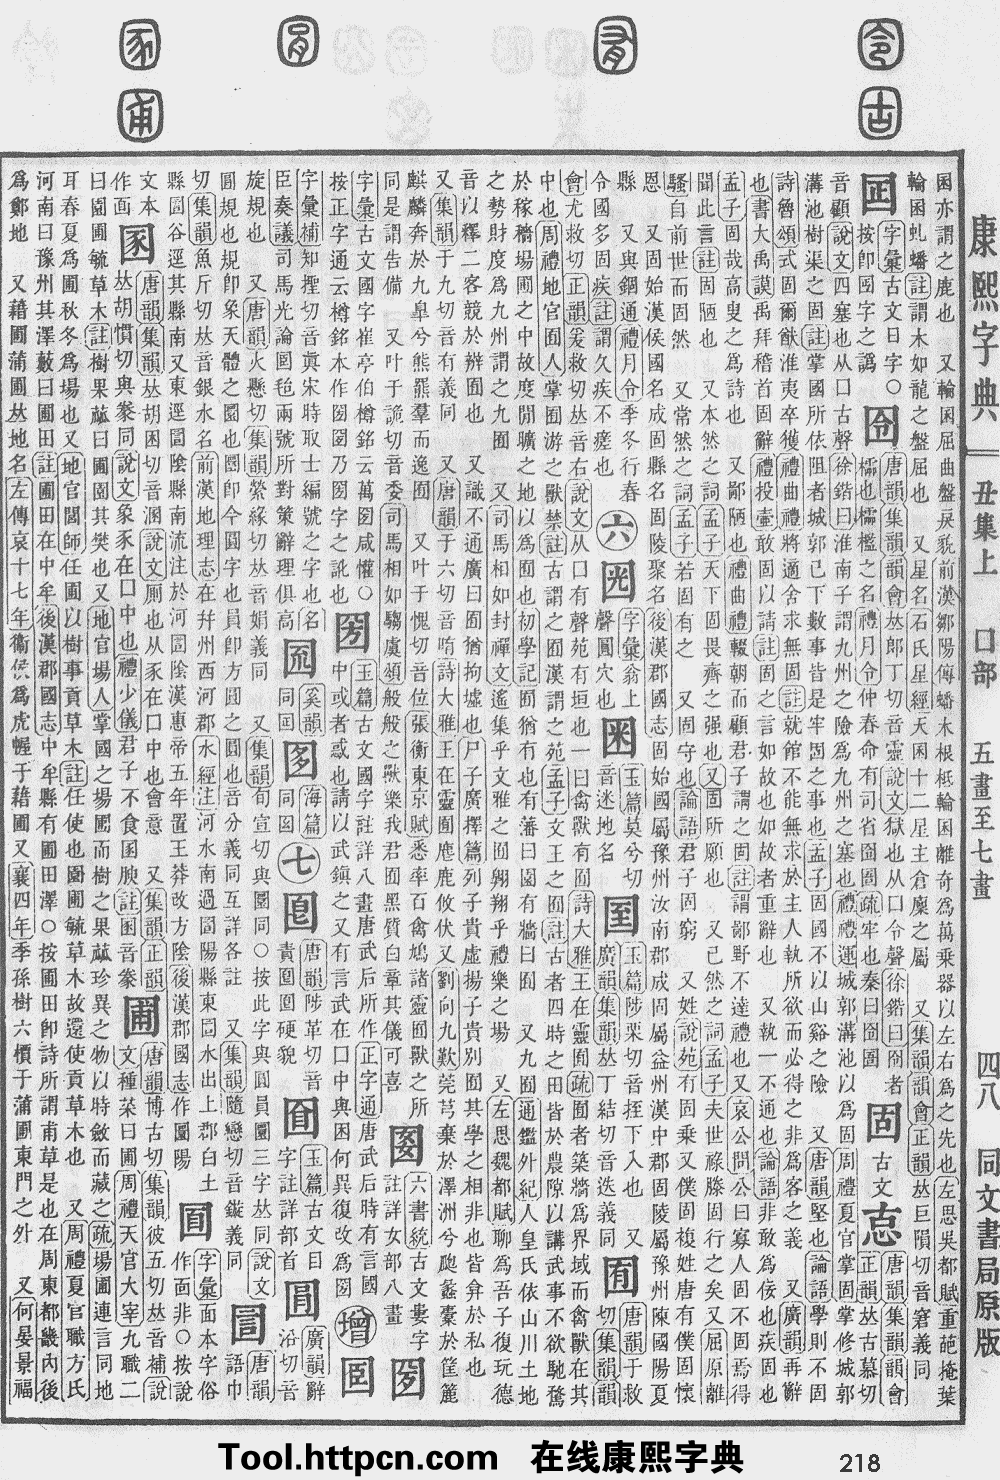 康熙字典 丑集上 口部 五畫至七畫 四八 同文書局原版
困亦謂之鹿也 又輪囷屈曲盤戾貌前漢鄒陽傳蟠木根柢輪囷離奇爲萬乗器以左右爲之先也左思吳都賦重葩掩葉
輪囷虬蟠註謂木如龍之盤屈也 又星名石氏星經天囷十二星主倉廩之屬 又集韻韻會正韻𠀤巨隕切音窘義同
字彙古文日字○按卽囶字之譌 囹 唐韻集韻韻會𠀤郎丁切音靈說文獄也从囗令聲徐鍇曰囹者
櫺也櫺檻之名禮月令仲春命有司省囹圄疏牢也秦曰囹圄 固 古文 唐韻集韻韻會正韻𠀤古慕切
音顧說文四塞也从囗古聲徐鍇曰淮南子謂九州之險爲九州之塞也禮禮運城郭溝池以爲固周禮夏官掌固掌修城郭
溝池樹渠之固註掌國所依阻者城郭已下數事皆是牢固之事也孟子固國不以山谿之險 又唐韻堅也論語學則不固
詩魯頌式固爾猷淮夷卒獲禮曲禮將適舍求無固註就館不能無求於主人執所欲而必得之非爲客之義 又廣韻再辭
也書大禹謨禹拜稽首固辭禮投壷敢固以請註固之言如故也如故者重辭也 又執一不通也論語非敢爲佞也疾固也
孟子固哉高叟之爲詩也 又鄙陋也禮曲禮輟朝而顧君子謂之固註謂鄙野不達禮也又哀公問公曰寡人固不固焉得
聞此言註固陋也 又本然之詞孟子天下固畏齊之强也又固所願也 又已然之詞孟子夫世祿滕固行之矣又屈原離
騷自前世而固然 又常然之詞孟子若固有之 又固守也論語君子固窮 又姓說苑有固乗又僕固複姓唐有僕固懷
恩 又固始漢侯國名成固縣名固陵聚名後漢郡國志固始國屬豫州汝南郡成固屬益州漢中郡固陵屬豫州陳國陽夏
縣 又與錮通禮月令季冬行春
令國多固疾註謂久疾不瘥也 六 字彙翁上聲圓穴也 玉篇莫兮切音迷地名 玉篇陟栗切音挃下入也 又廣韻集韻𠀤丁結切音迭義同 囿 唐韻于救切集韻韻
會尤救切正韻爰救切𠀤音右說文从囗有聲苑有垣也一曰禽獸有囿詩大雅王在靈囿疏囿者築牆爲界域而禽獸在其
中也周禮地官囿人掌囿游之獸禁註古謂之囿漢謂之苑孟子文王之囿註古者四時之田皆於農隙以講武事不欲馳騖
於稼穡場圃之中故度閒曠之地以爲囿也初學記囿猶有也藩曰園有牆曰囿 又九囿通鑑外紀人皇氏依山川土地
之勢財度爲九州謂之九囿 又司馬相如封禪文遙集乎文雅之囿翺翔乎禮樂之場 又左思魏都賦聊爲吾子復玩德
音以釋二客競於辨囿也 又識不通廣曰囿猶拘墟也尸子廣擇篇列子貴虛揚子貴別囿其學之相非也皆弇於私也
又集韻于九切音有義同 又唐韻于六切音唷詩大雅王在靈囿麀鹿攸伏又劉向九歎莞芎棄於澤洲兮瓟蠡蠹於筐簏
麒麟奔於九皐兮熊羆羣而逸囿 又叶于愧切音位張衡東京賦悉率百禽鳩諸靈囿獸之所
同是謂告備 又叶于詭切音委司馬相如騶虞頌般般之獸樂我君囿黑質白章其儀可喜 六書統古文婁字註詳女部八畫
字彙古文國字崔亭伯樽銘云萬圀咸懽○
按正字通云樽銘本作圀圀乃圀字之訛也 圀 玉篇古文國字註詳八畫唐武后所作正字通唐武后時有言國
中或者或也請以武鎮之又有言武在口中與困何異復改爲圀 增
字彙補知揑切音眞宋時取士編號之字也名
臣奏議司馬光論圁毥兩號所對策辭理俱高 奚韻同 海篇同 七 唐韻陟革切音責 硬貌 玉篇古文目字註詳部首 圎 廣韻辭沿切音
旋規也 又唐韻火懸切集韻縈緣切𠀤音娟義同 又集韻旬宣切與圜同○按此字與圓員圜三字𠀤同說文
圓規也規卽象天體之圜也圜卽今圓字也員卽方圓之圓也音分義同互詳各註 又集韻隨戀切音鏇義同 圁 唐韻語巾
切集韻魚斤切𠀤音銀水名前漢地理志在幷州西河郡水經注河水南過圁陽縣東圁水出上郡白土
縣圁谷逕其縣南又東逕圁陰縣南流注於河圁陰漢惠帝五年置王莽改方陰後漢郡國志作圜陽 字彙面本字俗
作面非○按說
文本作面 圂 唐韻集韻𠀤胡困切音溷說文厠也从豕在囗中也會意 又集韻正韻
𠀤胡慣切與豢同說文象豕在囗中也禮少儀君子不食圂腴註圂音豢 圃 唐韻博古切集韻彼五切𠀤音補說
文種菜曰圃周禮天官大宰九職二
曰園圃毓草木註樹果蓏曰圃園其樊也又地官場人掌國之場圃而樹之果蓏珍異之物以時斂而藏之疏場圃連言同地
耳春夏爲圃秋冬爲場也又地官閭師任圃以樹事貢草木註任使也園圃毓草木故還使貢草木也 又周禮夏官職方氏
河南曰豫州其澤藪曰圃田註圃田在中牟後漢郡國志中牟縣有圃田澤○按圃田卽詩所謂甫草是也在周東都畿內後
爲鄭地 又藉圃蒲圃𠀤地名左傳哀十七年衞侯爲虎幄于藉圃又襄四年季孫樹六檟于蒲圃東門之外 又何晏景福
Tool.httpcn.com 在线康熙字典
218